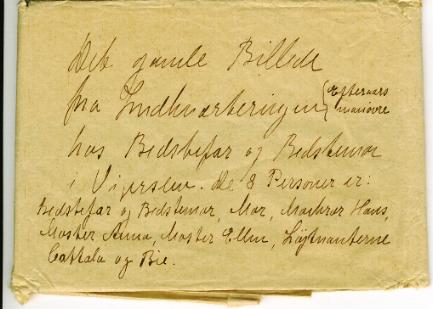 Det gamle Billede
fra Indkvarteringen (Efteraars
manøvre
hos Bedstefar og Bedstemor
i Vigerslev. De 8 Personer er:
Bedstefar og Bedstemor, Mor, Morbror Hans,
Moster Anna, Moster Ellen, Løjtnanterne
Cattala og Bie.